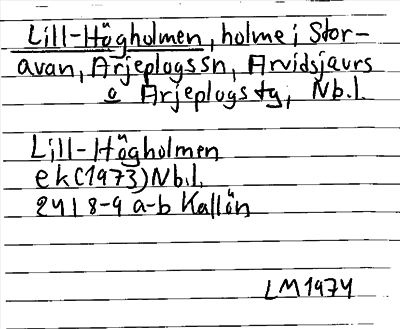 Lill-Högholmen, holme i Stor-
avan, Arjeplogs sn, Arvidsjaurs
o Arjeplogs tg, Nb.l.
Lill-Högholmen
ek(1973)Nb.l.
24I 8-9 a-b Kallön
LM1974